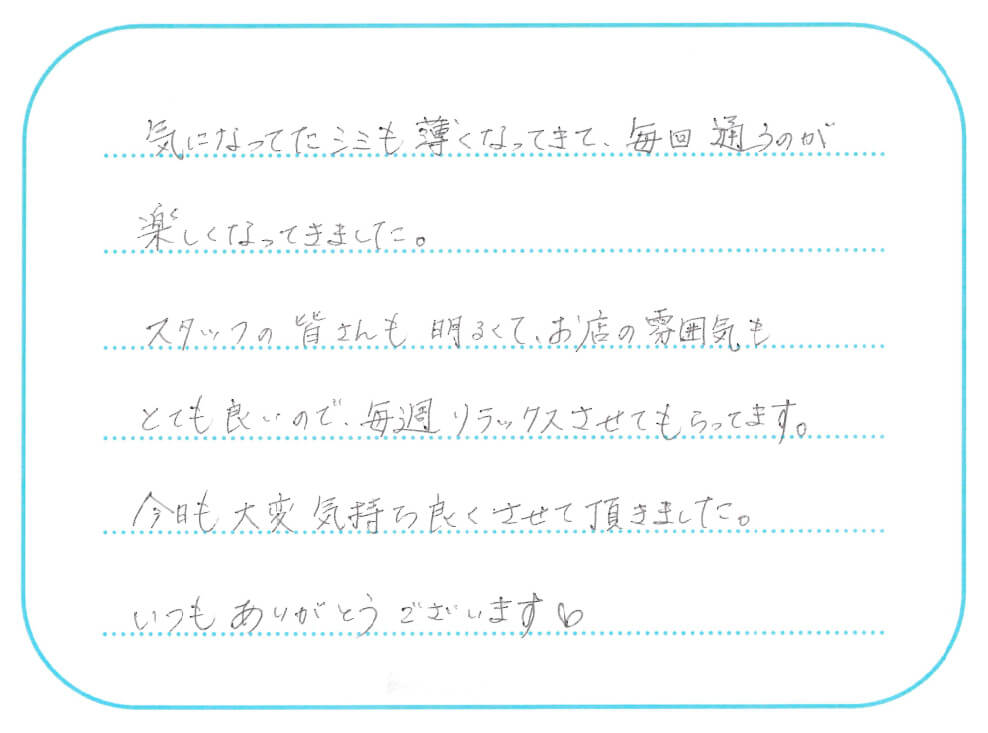 気になってたシミも薄くなってきて、毎回通うのが
楽しくなってきました。
スタッフの皆さんも明るくて、お店の雰囲気も
とても良いので、毎週リラックスさせてもらってます。
今日も大変気持ち良くさせて頂きました。
いつもありがとうございます♡